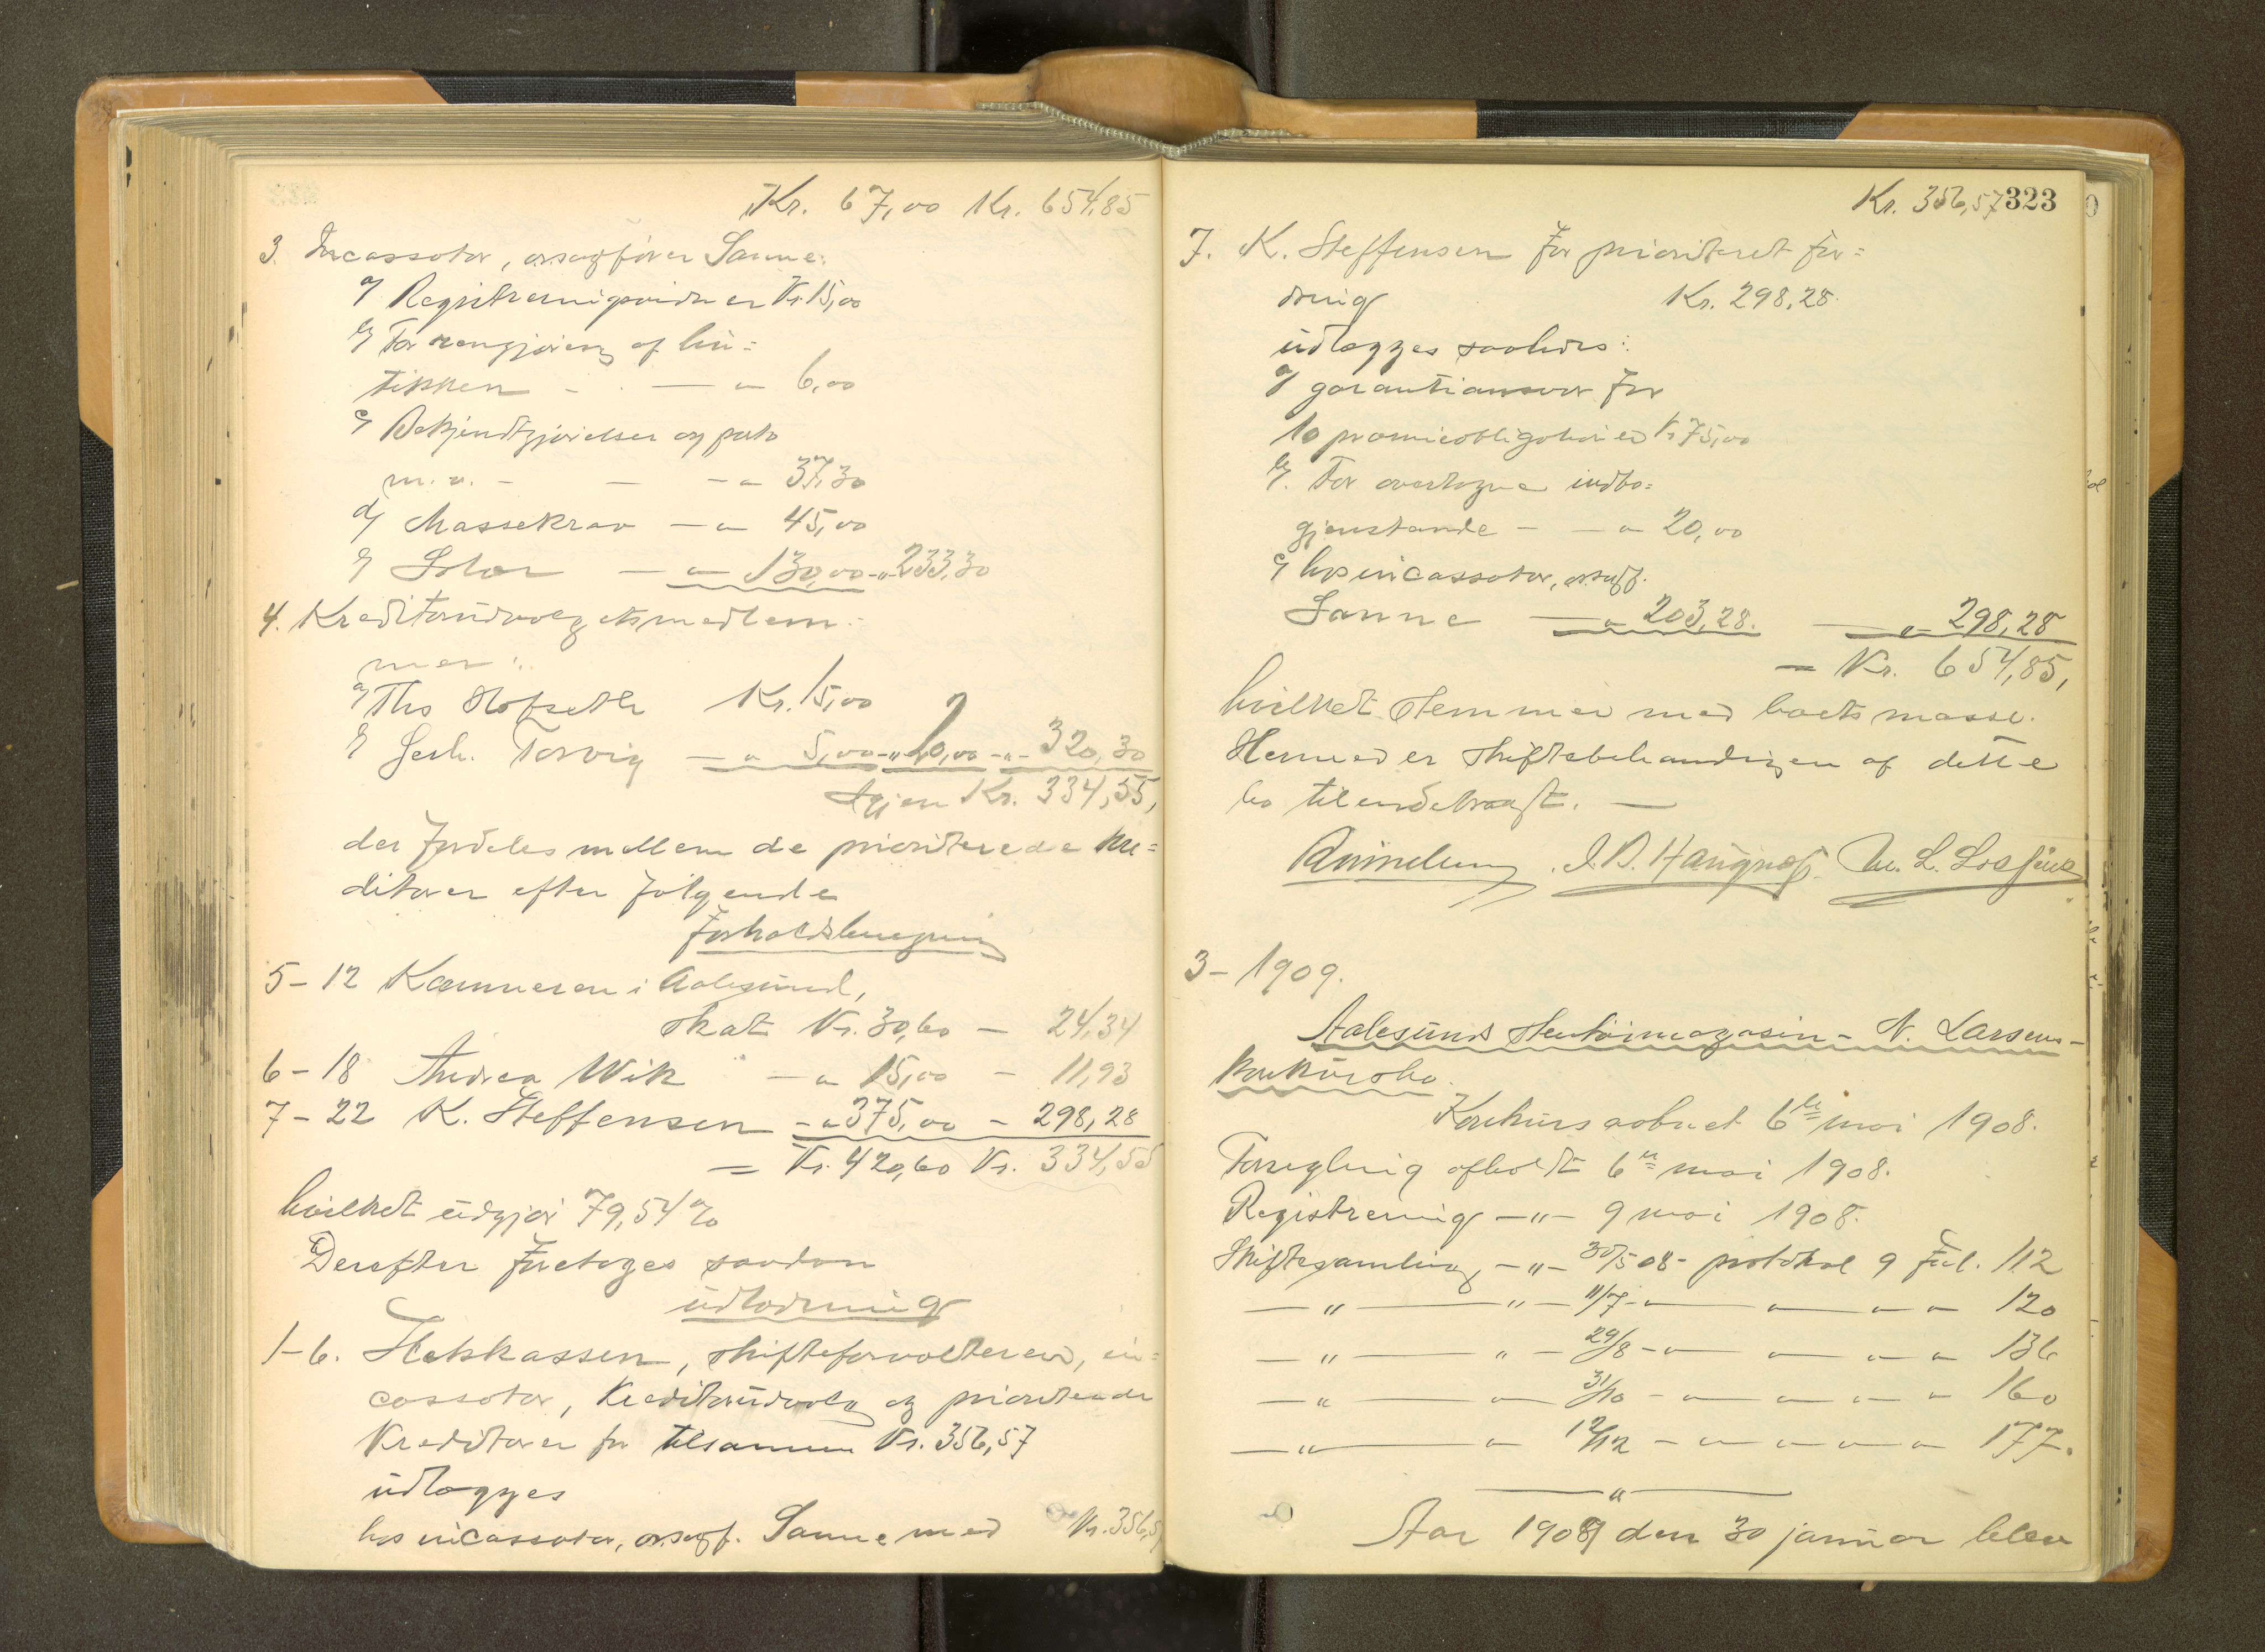 Kr. 67,00 Kr. 654,85
3. Incassator, orsagfører Sanne:
a/ Registreringsvidner Kr. 15,00
b/ For rengjøring af bu=
tikken - - — " 6,00
c/ Bekjendtgjørelser og porto
m.v. - — - " 37,30
d/ Massekrav — " 45,00
e/ Salær — " 130,00 - " 233,30
4. Kreditorudvalgetsmedlem-
mer:
a/ Ths Hofseth Kr. 15,00
b/ Gerh. Torvig — " 5,00 - " 20,00 - " - 320,30
Igjen Kr. 334,55,
der fordeles mellem de prioriterede kre=
ditorer efter følgende
forholdsberegning
5-12 Kæmneren i Aalesund,
skat Kr. 30,60 — 24,34
6-18 Andrea Wik — " 15,00 — 11,93
7-22 K. Steffensen - " 375,00 — 298,28
= Kr. 420,60 Kr. 334,55
hvilket udgjør 79,54 %
Derefter foretoges saadan
udlodning
1-6. Statskassen, skifteforvalteren, in=
cassator, kreditorudvalg og prioriterede
kreditorer for tilsammen Kr. 356,57
udlægges
hos incassator, orsagf. Sanne med Kr. 356,57
Kr. 356,57 323
7. K. Steffensen for prioriteret for=
dring Kr. 298,28.
udlægges saaledes:
a/ garantiansvar for
10 præmieobligationer Kr. 75,00
b/. For overtagne indbo=
gjenstande - — " 20,00
c/ hos incassator, orsagf.
Sanne — " 203,28. — " 298,28
= Kr. 654,85,
hvilket stemmer med boets masse.
Hermed er skiftebehandlingen af dette
bo tilendebragt. —
J. D. Haugnæs.
3-1909.
Aalesunds Stentøimagasin - N. Larsens-
konkursbo.
Konkurs aabnet 6te mai 1908.
Forsegling afholdt 6te mai 1908.
Registrering — " — 9 mai 1908.
Skiftesamling — " — 30/5 08 - protokol 9 Fol. 112
— " — " — 11/7 - " — " — " — " — 120
— " — " — 29/8 - " — " — " — " — 136
— " — " — 31/10 - " — " — " — " — 160
— " — " — 12/12 - " — " — " — " — 177.
— " —
Aar 1909 den 30 januar blev